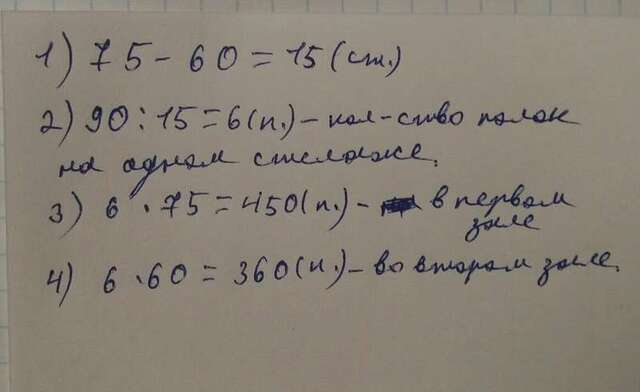 1) 75 - 60 = 15 (ст.)
2) 90 : 15 = 6 (п.) - кол-ство полок
на одном стелаже.
3) 6 · 75 = 450 (п.) - в первом
зале
4) 6 · 60 = 360 (п.) - во втором зале.